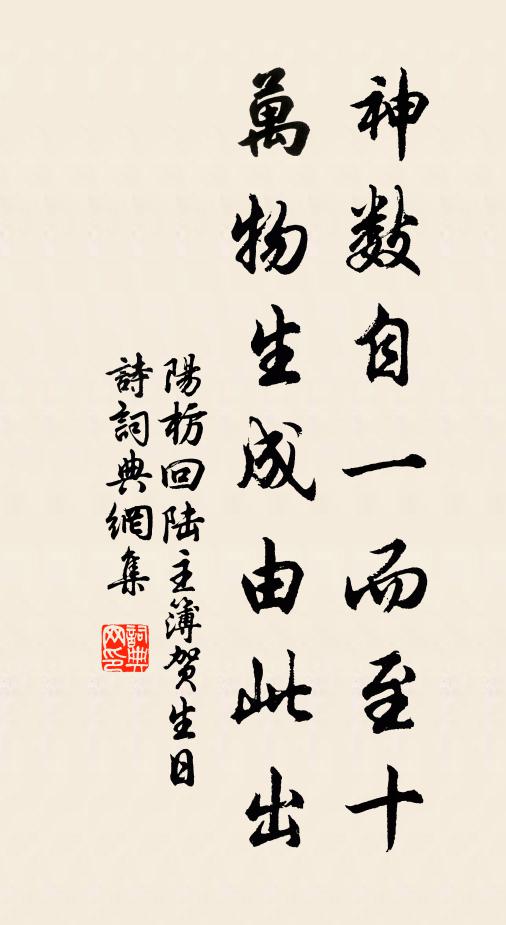 神数自一而至十
萬物生成由此出
陽枋回陆主簿贺生日
詩詞典網集
詞典网印